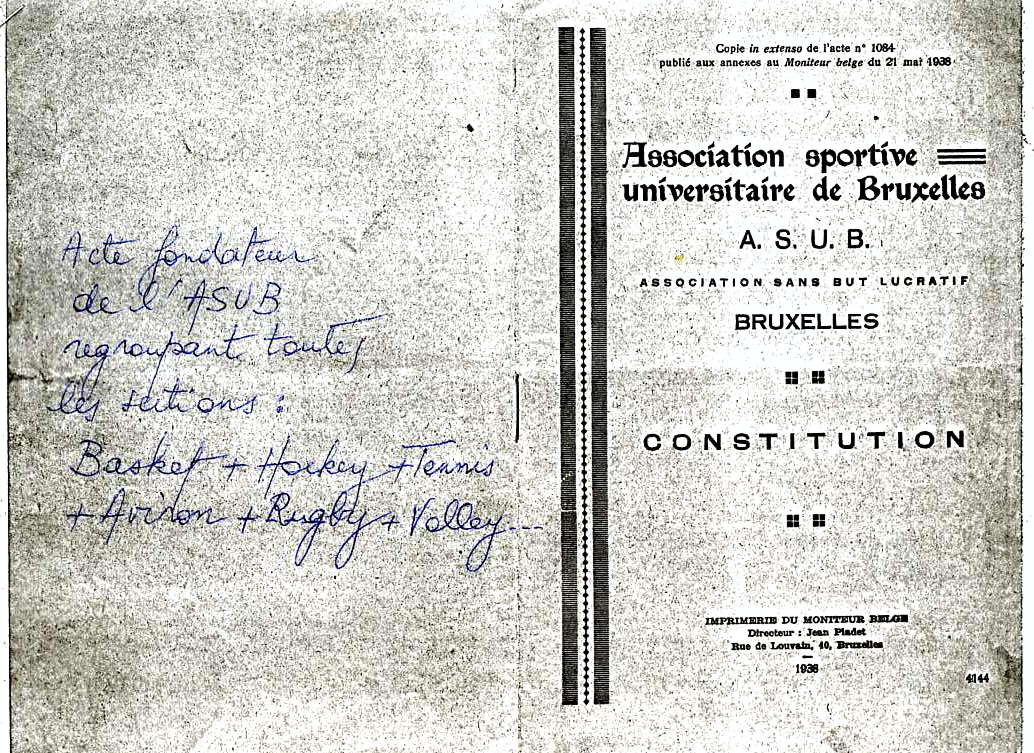 Acte fondateur
de l'ASUB
regroupant toutes
les sections :
Basket + Hockey + Tennis
+ Aviron + Rugby + Volley...
Copie in extenso de l'acte n° 1084
publié aux annexes au Moniteur belge du 21 mai 1938
Association sportive
universitaire de Bruxelles
A. S. U. B.
ASSOCIATION SANS BUT LUCRATIF
BRUXELLES
CONSTITUTION
IMPRIMERIE DU MONITEUR BELGE
Directeur : Jean Pladet
Rue de Louvain, 40, Bruxelles
1938
4144